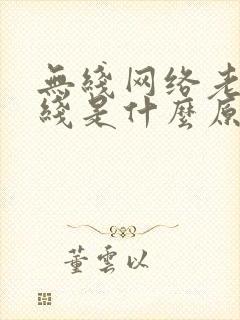 無綫网络老
綫是什麼原
董雲以